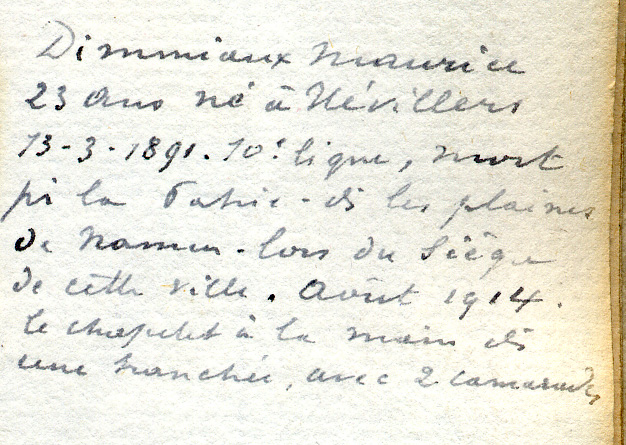 Dimmiaux Maurice
23 ans né à Hévillers
13-3-1891. 10e ligne, mort
pr la Patrie - ds les plaines
de Namur - lors du Siège
de cette ville. Août 1914.
le chapelet à la main ds
une tranchée, avec 2 camarades